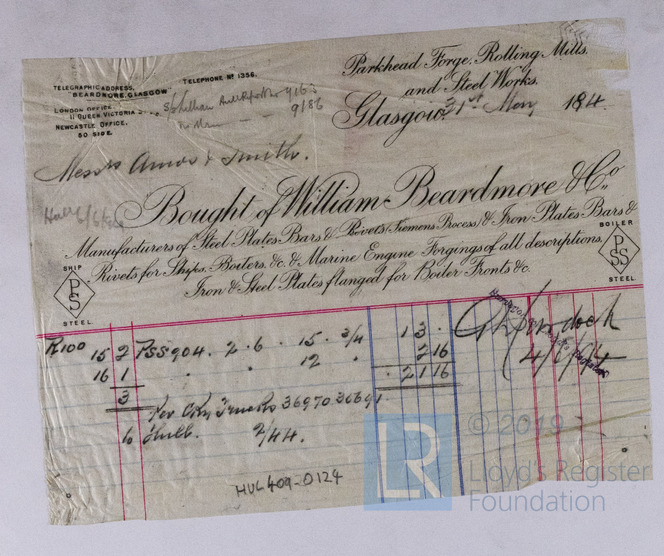 Parkhead Forge, Rolling Mills,
and Steel Works.
TELEGRAPHIC ADDRESS,
BEARDMORE, GLASGOW
TELEPHONE No 1356.
LONDON OFFICE,
11 QUEEN VICTORIA
NEWCASTLE OFFICE,
50 SIDE.
Hull Report No 9163
9186
Glasgow, 31st May 184.
Messrs Amos & Smith.
Bought of William Beardmore & Co.
Manufacturers of Steel Plates Bars & Rivets (Siemens Process) & Iron Plates Bars &
Rivets for Ships, Boilers, &c. & Marine Engine Forgings of all descriptions,
Iron & Steel Plates flanged for Boiler Fronts &c.
SHIP
PSS
STEEL
BOILER
PSS
STEEL
R100 15 2 PSS904. 2.6. 15. 3/4 13.
16 1 " " 12 " 2 16
3 . 21 16
Per Trucks 36970 36691
to Hull. 2/44.
4/6/94
HUL409-0124
© 2019
LR
Lloyd's Register
Foundation